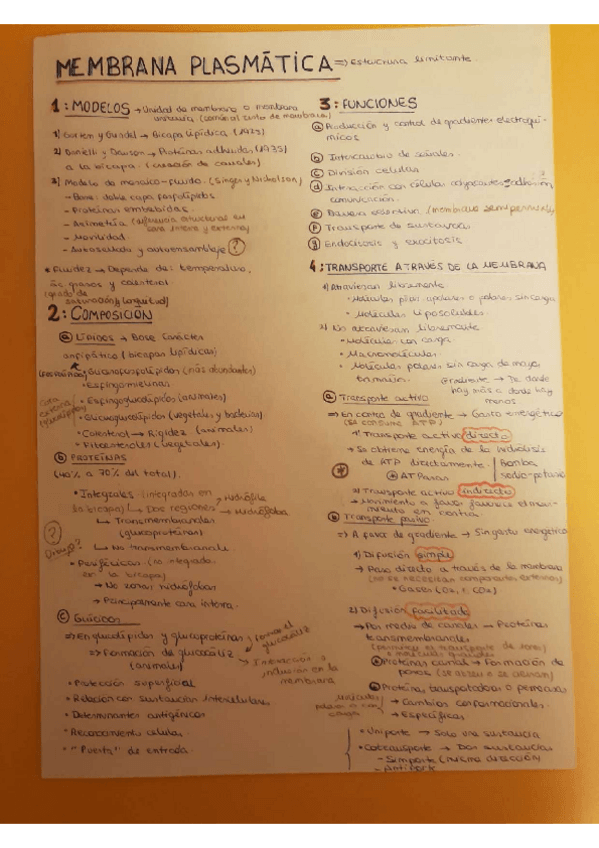 MEMBRANA PLASMÁTICA => Estructura limitante
1: MODELOS → Unidad de membrana o membrana
unitaria (común al resto de membranas)
1) Gorter y Grendel → Bicapa lipídica (1925)
2) Danielli y Dawson → Proteínas adheridas (1935)
a la bicapa. (creación de canales)
3) Modelo de mosaico-fluido. (Singer y Nicholson)
- Base: doble capa fosfolípidos
- Proteínas embebidas.
- Asimetría (diferencia estructural en
cara interna y externa)
- Movilidad.
- Autosellado y autoensamblaje ?
* Fluidez → Depende de: temperatura,
ác. grasos y colesterol.
(grado de
saturación y longitud)
2: COMPOSICIÓN
a LÍPIDOS → Base. Carácter
anfipático (bicapas lipídicas)
• Glicerofosfolípidos (más abundantes)
• Esfingomielinas
• Esfingoglucolípidos (animales)
• Gliceroglucolípidos (vegetales y bacterias)
• Colesterol → Rigidez (animales)
• Fitoesteroles (vegetales).
b PROTEÍNAS
(40% a 70% del total).
• Integrales (integradas en
la bicapa) ↳ Dos regiones → Hidrófila
→ Hidrófoba
↳ Transmembranales
(glucoproteínas)
? Dibujo?
↳ No transmembranales
• Periféricas (no integradas
en la bicapa)
↳ No zonas hidrófobas
↳ Principalmente cara interna.
c GLÚCIDOS
=> En glucolípidos y glucoproteínas → forman el glucocáliz
=> Formación de glucocáliz
(animales)
• Protección superficial
• Relación con sustancias intercelulares
• Determinantes antigénicos
• Reconocimiento celular
• "Puerta" de entrada.
3: FUNCIONES
a Producción y control de gradientes electroquí-
micos
b Intercambio de señales.
c División celular
d Interacción con células adyacentes → adhesión
comunicación.
e Barrera selectiva (membranas semipermeables)
f Transporte de sustancias.
g Endocitosis y exocitosis
4: TRANSPORTE A TRAVÉS DE LA MEMBRANA
1) Atraviesan libremente
• Moléculas peq. apolares o polares sin carga
• Moléculas liposolubles.
2) No atraviesan libremente
• Moléculas con carga
• Macromoléculas.
• Moléculas polares sin carga de mayor
tamaño.
Gradiente → De donde
hay más a donde hay
menos
a Transporte activo
=> En contra de gradiente → Gasto energético
(se consume ATP)
1) Transporte activo directo
→ Se obtiene energía de la hidrólisis
de ATP directamente.
* ATPasas
Bomba
sodio-potasio *
2) Transporte activo indirecto
→ Movimiento a favor favorece el movi-
miento en contra
b Transporte pasivo
=> A favor de gradiente → Sin gasto energético
1) Difusión simple
→ Paso directo a través de la membrana
(no se necesitan componentes externos)
• Gases (O2, CO2)
2) Difusión facilitada
→ Por medio de canales → Proteínas
transmembranales
(permiten el transporte de iones)
o moléculas grandes
a Proteínas canal → Formación de
poros (se abren o se cierran)
b Proteínas transportadoras o permeasas
Moléculas
polares o con
carga
→ Cambios conformacionales.
→ Específicas
• Uniporte → Solo una sustancia
• Cotransporte → Dos sustancias
- Simporte (misma dirección)
- Antiporte